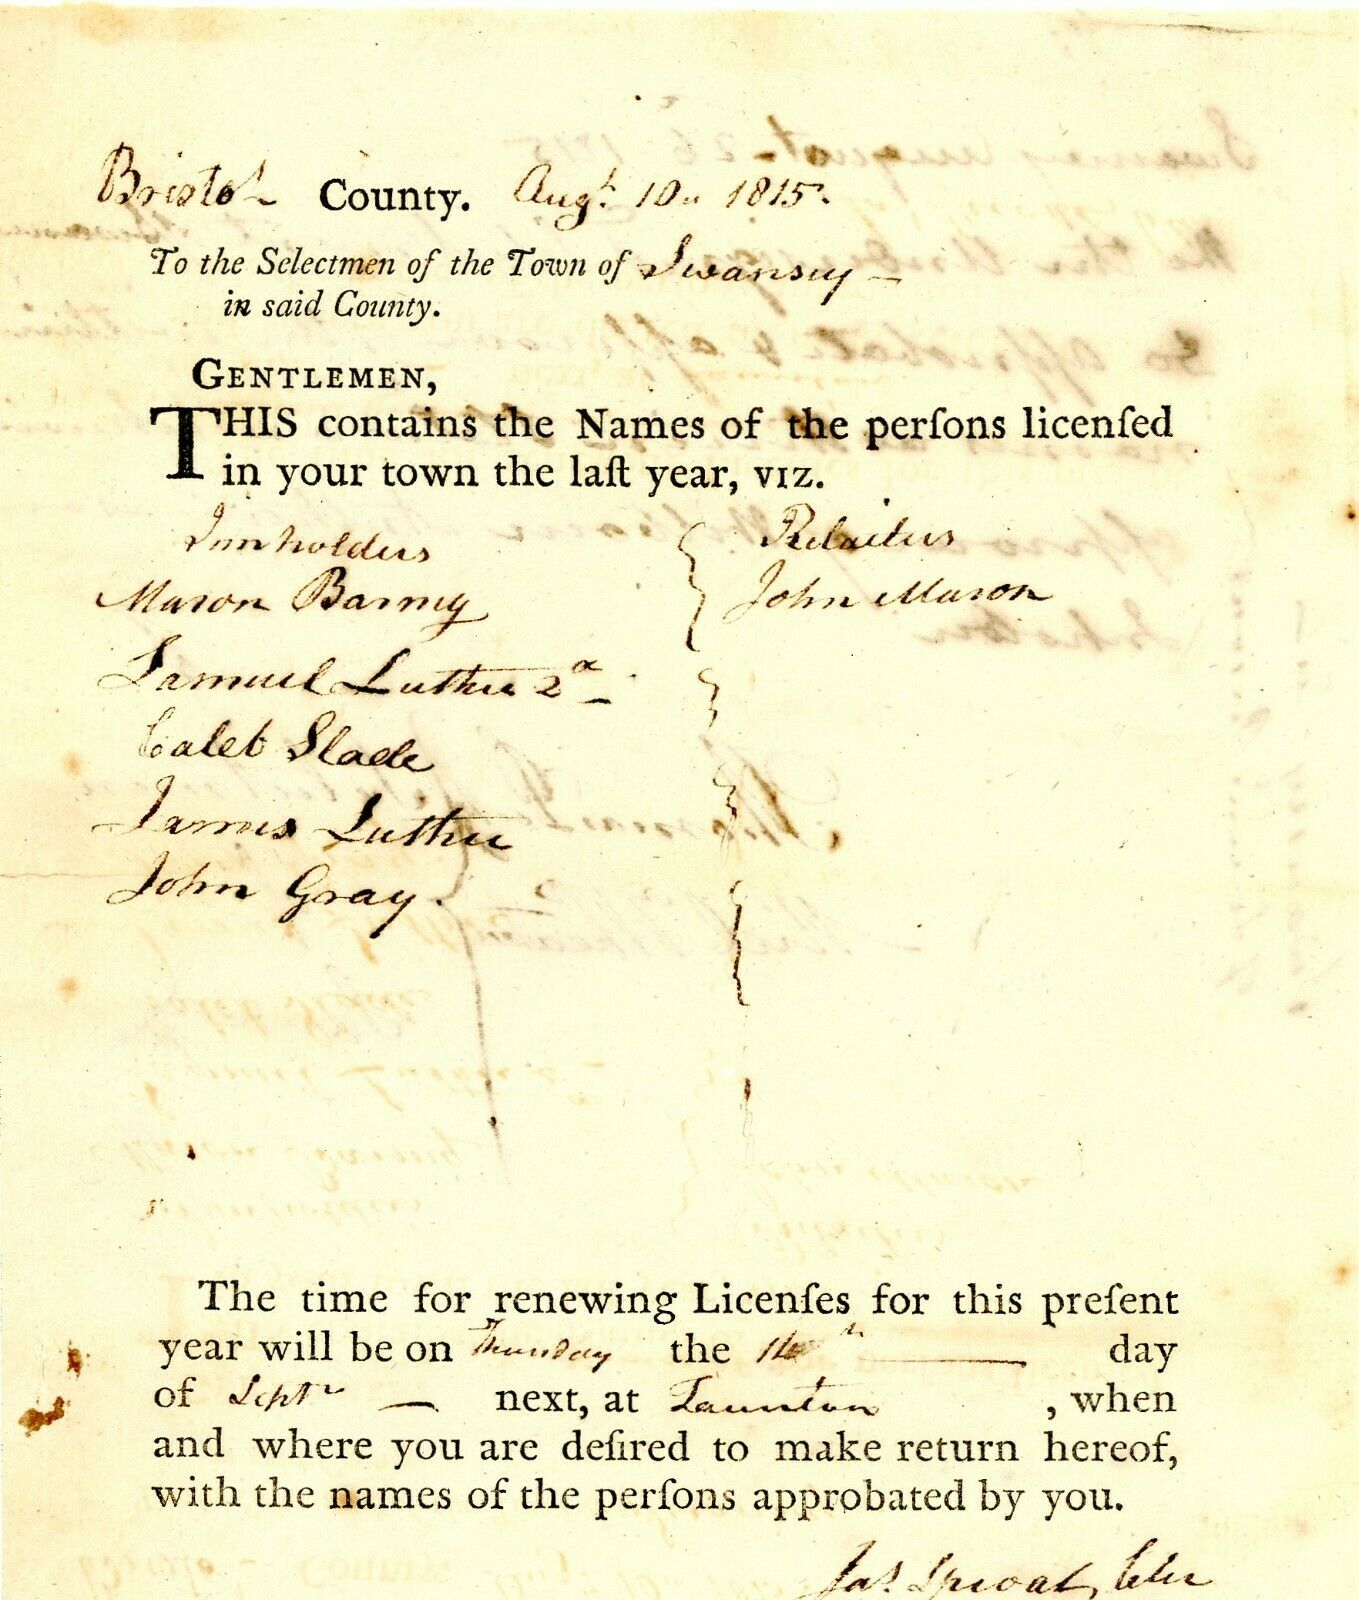 Bristol County. Augt. 10. 1815.
To the Selectmen of the Town of Swansey —
in said County.
GENTLEMEN,
THIS contains the Names of the perſons licenſed
in your town the laſt year, VIZ.
Innholders Retailers
Mason Barney John Mason
Samuel Luther 2d —
Caleb Slade
James Luther
John Gray.
The time for renewing Licenſes for this preſent
year will be on Thursday the day
of Septr — next, at Taunton , when
and where you are deſired to make return hereof,
with the names of the perſons approbated by you.
Jas. Sproat, Cler